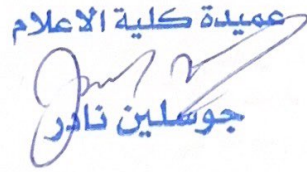 عميدة كلية الاعلام
جوسلين نادر